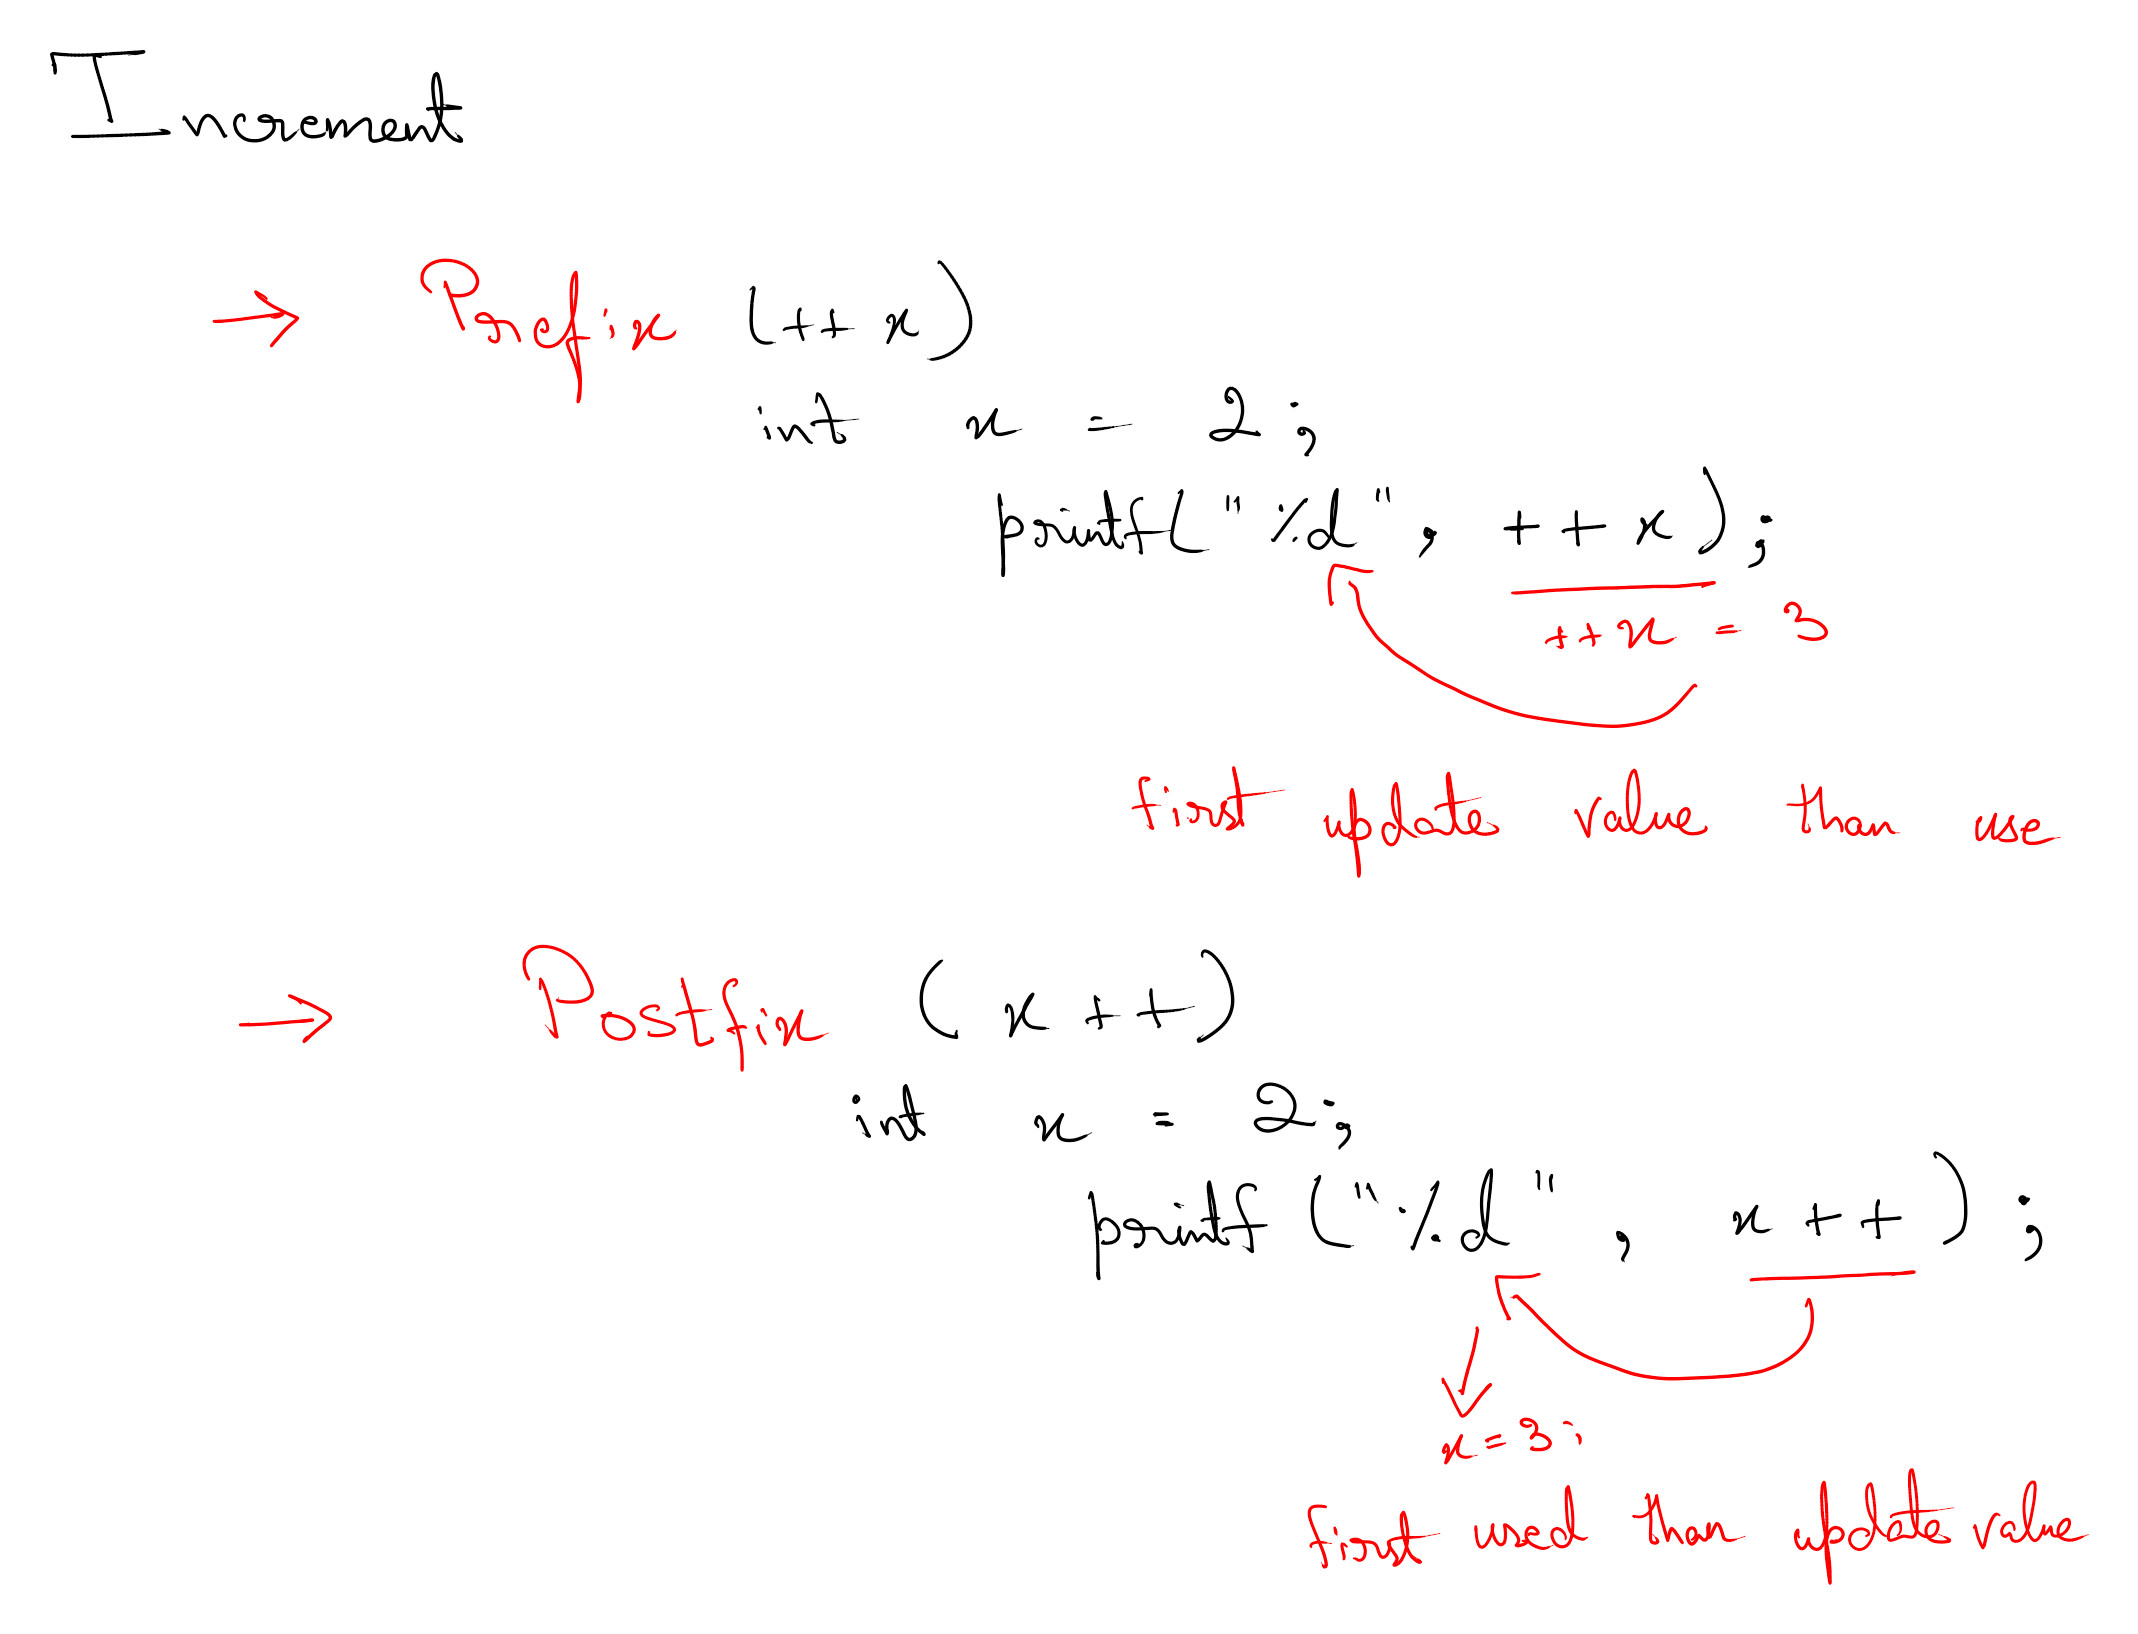 Increment
→ Prefix (++x)
int x = 2;
printf("%d", ++x);
++x = 3
first update value than use
→ Postfix (x++)
int x = 2;
printf ("%d", x++);
x=3;
first used than update value